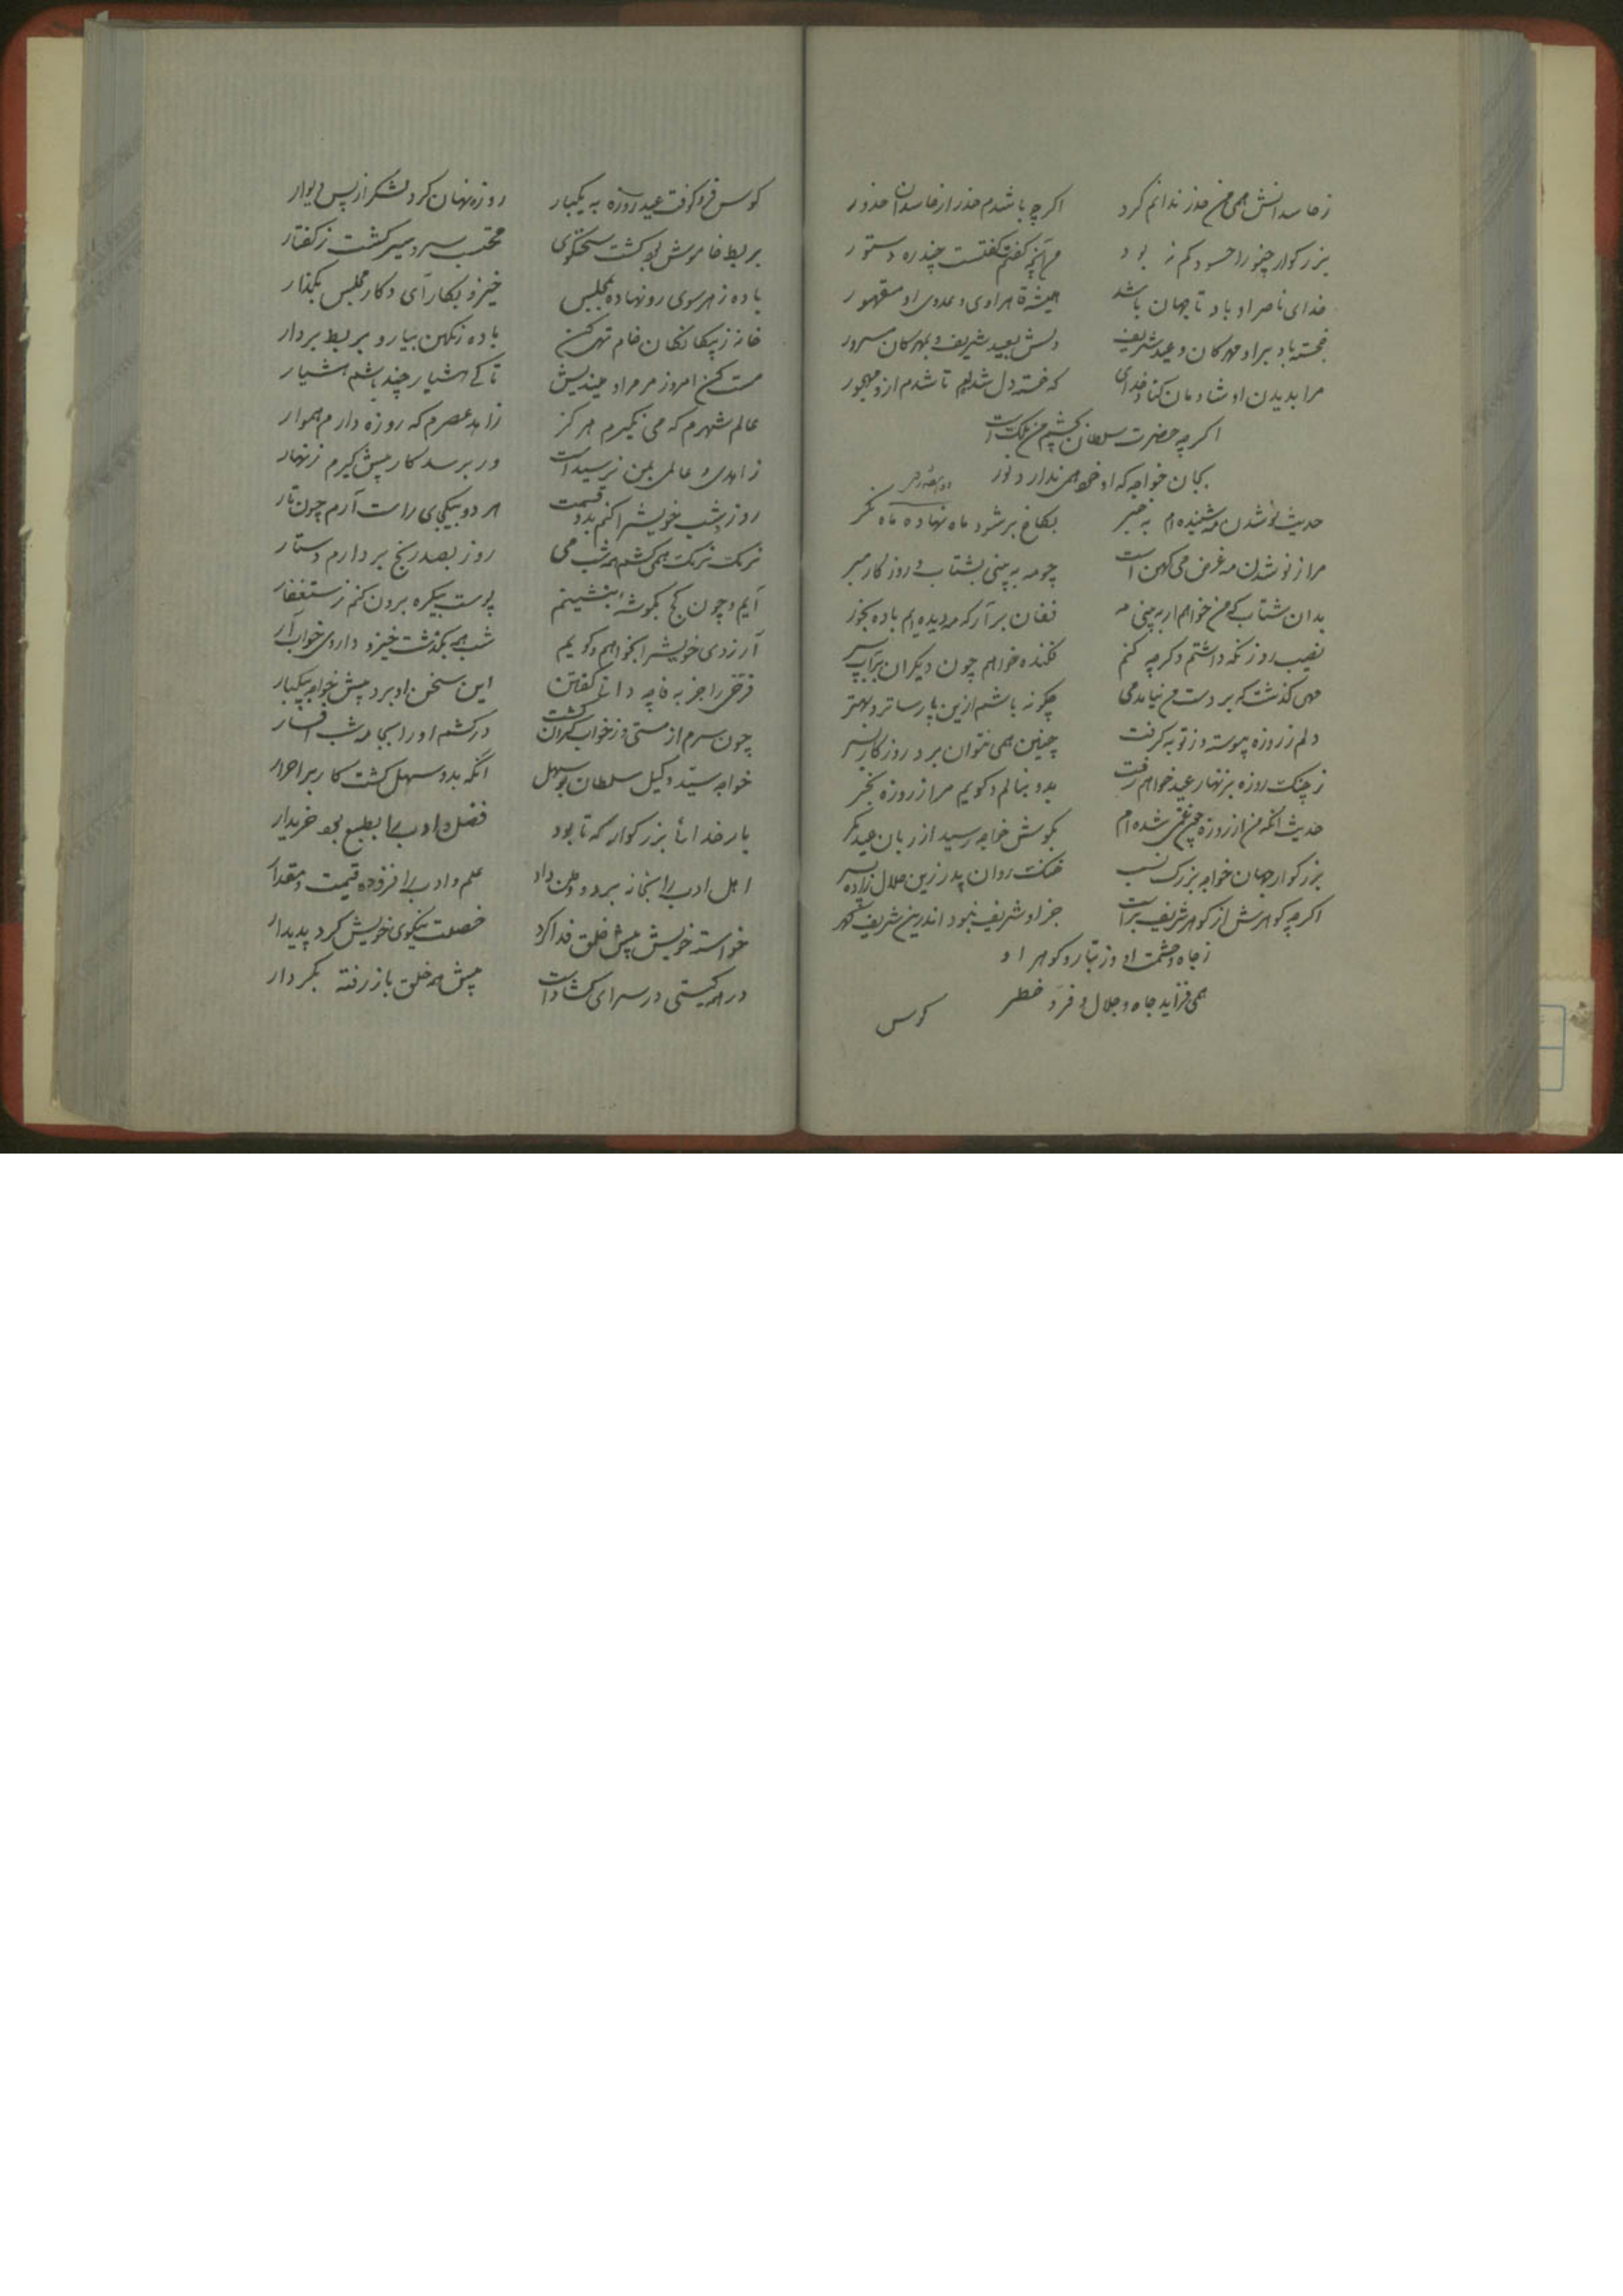 ز حاسدانش همی من حذر ندانم کرد اگرچه باشدم حذر از حاسدان حذور
بزرگوار چنو را حسود کم نبود من آنچه گفتم گفتست چند ره دستور
خدای ناصر او باد تا جهان باشد همیشه قاهر اوی و عدوی او مقهور
خجسته باد بر او مهرکان و عید شریف دلش بعید شریف و بمهرکان مسرور
مرا بدیدن او شادمان کناد خدای که خسته دل شده‌ام تا شدم ازو مهجور
اگرچه حضرت سلطان بچشم من ملک است
بجان خواجه که او خود همی ندارد نور
حدیث نو شدن مه شنیده‌ام به خبر بکاخ بر شود ماه نهاده ماه نگر
مرا ز نو شدن مه غرض می کهن است چو مه به بینی بشتاب و روزگار مبر
بدان شتاب که من خواهم ار به بینی مه فغان برآر که مه دیده‌ام باده بخور
نصیب روز نگه داشتم دگر چه کنم فکنده خواهم چون دیگران بر آب سپر
مهی گذشت که بر دست من نیامد می چگونه باشم ازین پارساتر و بهتر
دلم ز روزه بپوسید و ز توبه گرفت چنین همی نتوان برد روزگار بسر
ز چنگ روزه بزنهار عید خواهم رفت بدو بنالم و گویم مرا ز روزه بخر
حدیث آنکه من از روزه چون غمی شده‌ام بگوش خواجه رسید از زبان عید مگر
بزرگوار جهان خواجه بزرگ نسب خنک روان پدر زین حلال زاده پسر
اگرچه گوهرش از گوهر شریف تر است جز او شریف نبود اندرین شریف گهر
ز جاه و حشمت او و ز تبار و گوهر او
همی فزاید جاه و جلال و فر و خطر
کوس
کوس فرو کوفت عید روزه به یکبار روزه نهان کرد لشکر از پس دیوار
بربط خاموش بوده گشت سخنگوی محتسب سرد سیر گشت ز گفتار
باده ز هر سوی رو نهاده بمجلس خیز و بکار آی و کار مجلس بگذار
خانه ز بیگانگان خام تهی کن باده رنگین بیار و بربط بردار
مست کن امروز مر مرا و میندیش تا کی هشیار چند باشم هشیار
عالم شهرم که می نگیرم هرگز زاهد عصرم که روزه دارم هموار
زاهدی و عالمی بمن نرسیدست ور برسد کار پیش گیرم زنهار
روز و شب خویش را کنم بدو قسمت هر دو بیکجای راست آرم چون تار
نرمک نرمک همی کشم همه شب می روز بصد رنج بردارم دستار
آیم و چون کج بگوشه بنشینم پوست بیکره برون کنم ز ستغفار
آرزوی خویش را بخواهم و گویم شب همه بگذشت خیز و داروی خواب آر
فرخی را جز به فاچه دانا گفتن این سخن او برد پیش خواجه بیکبار
چون سرم از مستی و ز خواب گران گشت درکشم او را بجامه شب افسار
خواجه سید وکیل سلطان بوسهل آنکه بدو سهل گشت کار بر احرار
بار خدائ بزرگوار که تا بود فضل و ادب را بطبع بود خریدار
اهل ادب را بخانه برد و وطن داد علم و ادب را فزوده قیمت و مقدار
خواسته خویش پیش خلق فدا کرد خصلت نیکوی خویش کرد پدیدار
در همه گیتی در سرای گشادست پیش همه خلق باز رفته بکردار